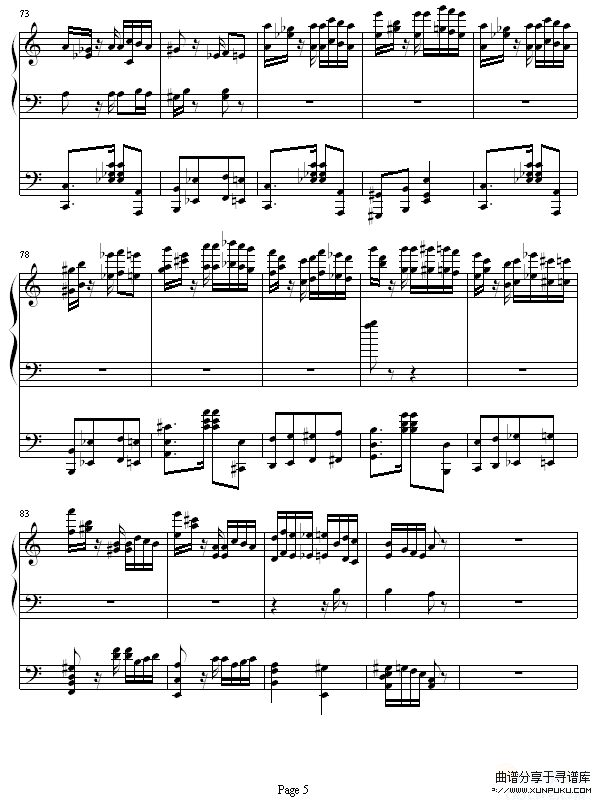 73
78
83
Page 5
曲谱分享于寻谱库
WWW.XUNPUKU.COM